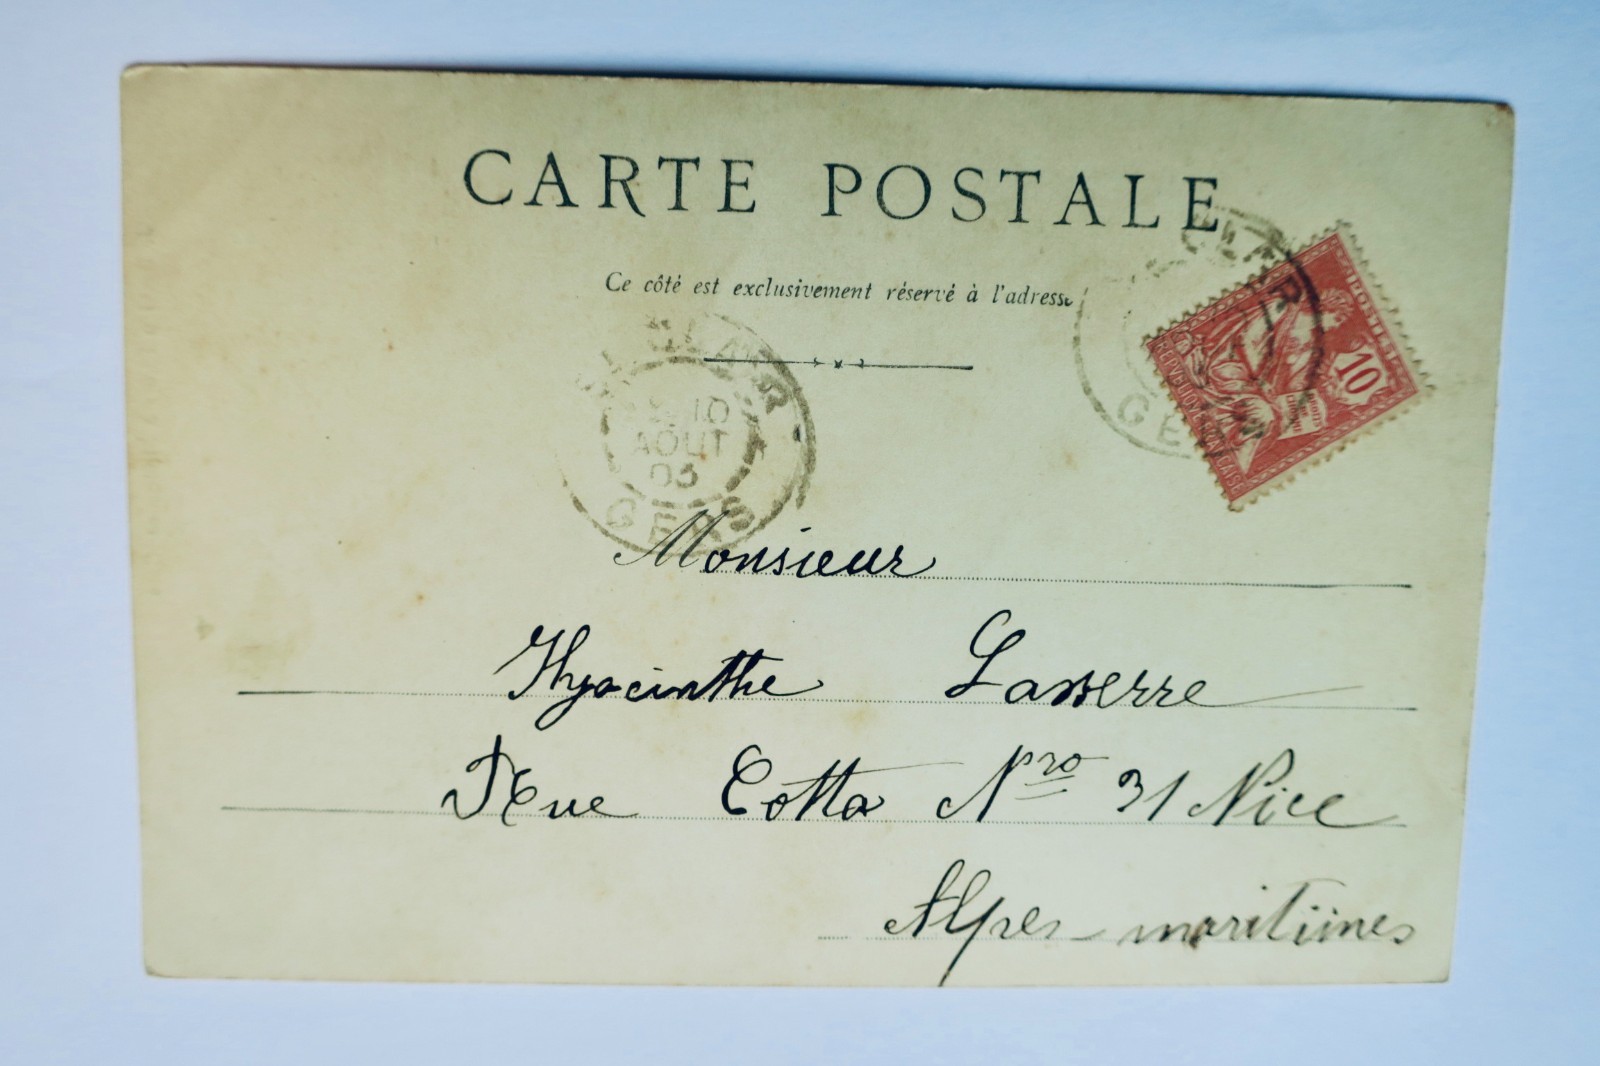 CARTE POSTALE
Ce côté est exclusivement réservé à l'adresse
POSTES
10
DROITS DE L'HOMME
REPUBLIQUE FRANCAISE
10
AOUT
03
GERS
Monsieur
Hyacinthe Lasserre
Rue Cotta Nro 31 Nice
Alpes-maritimes